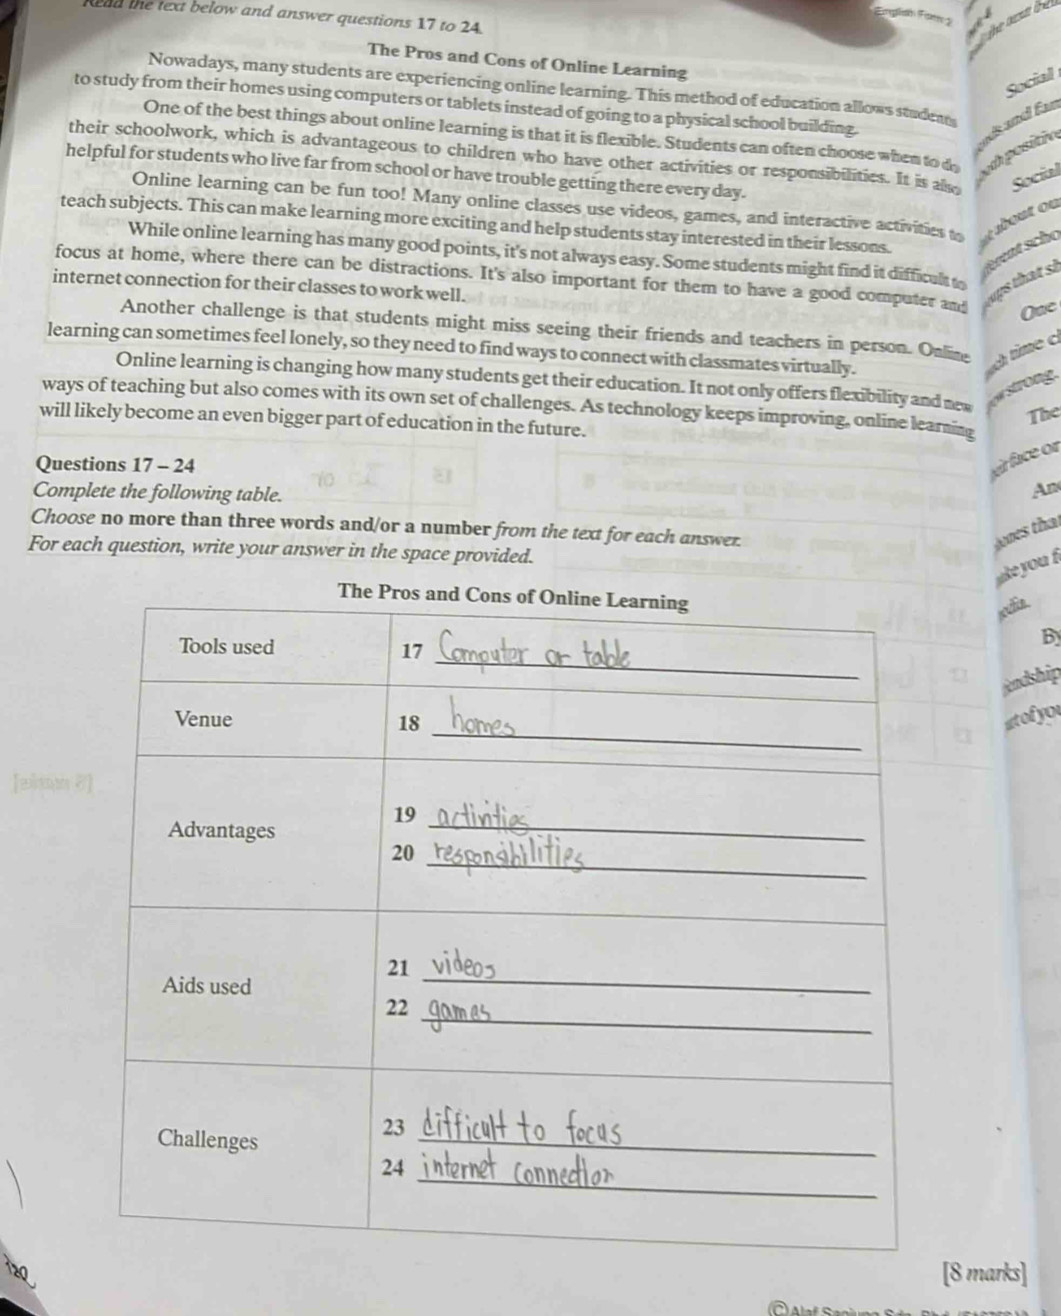 Read the text below and answer questions 17 to 24.
English Form 2
The Pros and Cons of Online Learning
Nowadays, many students are experiencing online learning. This method of education allows students
to study from their homes using computers or tablets instead of going to a physical school building.
One of the best things about online learning is that it is flexible. Students can often choose when to do
their schoolwork, which is advantageous to children who have other activities or responsibilities. It is also
helpful for students who live far from school or have trouble getting there every day.
Online learning can be fun too! Many online classes use videos, games, and interactive activities to
teach subjects. This can make learning more exciting and help students stay interested in their lessons.
While online learning has many good points, it's not always easy. Some students might find it difficult to
focus at home, where there can be distractions. It's also important for them to have a good computer and
internet connection for their classes to work well.
Another challenge is that students might miss seeing their friends and teachers in person. Online
learning can sometimes feel lonely, so they need to find ways to connect with classmates virtually.
Online learning is changing how many students get their education. It not only offers flexibility and new
ways of teaching but also comes with its own set of challenges. As technology keeps improving, online learning
will likely become an even bigger part of education in the future.
Questions 17 – 24
Complete the following table.
Choose no more than three words and/or a number from the text for each answer.
For each question, write your answer in the space provided.
The Pros and Cons of Online Learning
Tools used 17 Computer or table
Venue 18 homes
Advantages
19 activities
20 responsibilities
Aids used
21 videos
22 games
Challenges
23 difficult to focus
24 internet connection
[8 marks]
Social
Social
about
that
One
time
strong.
The
face or
you
By
of you